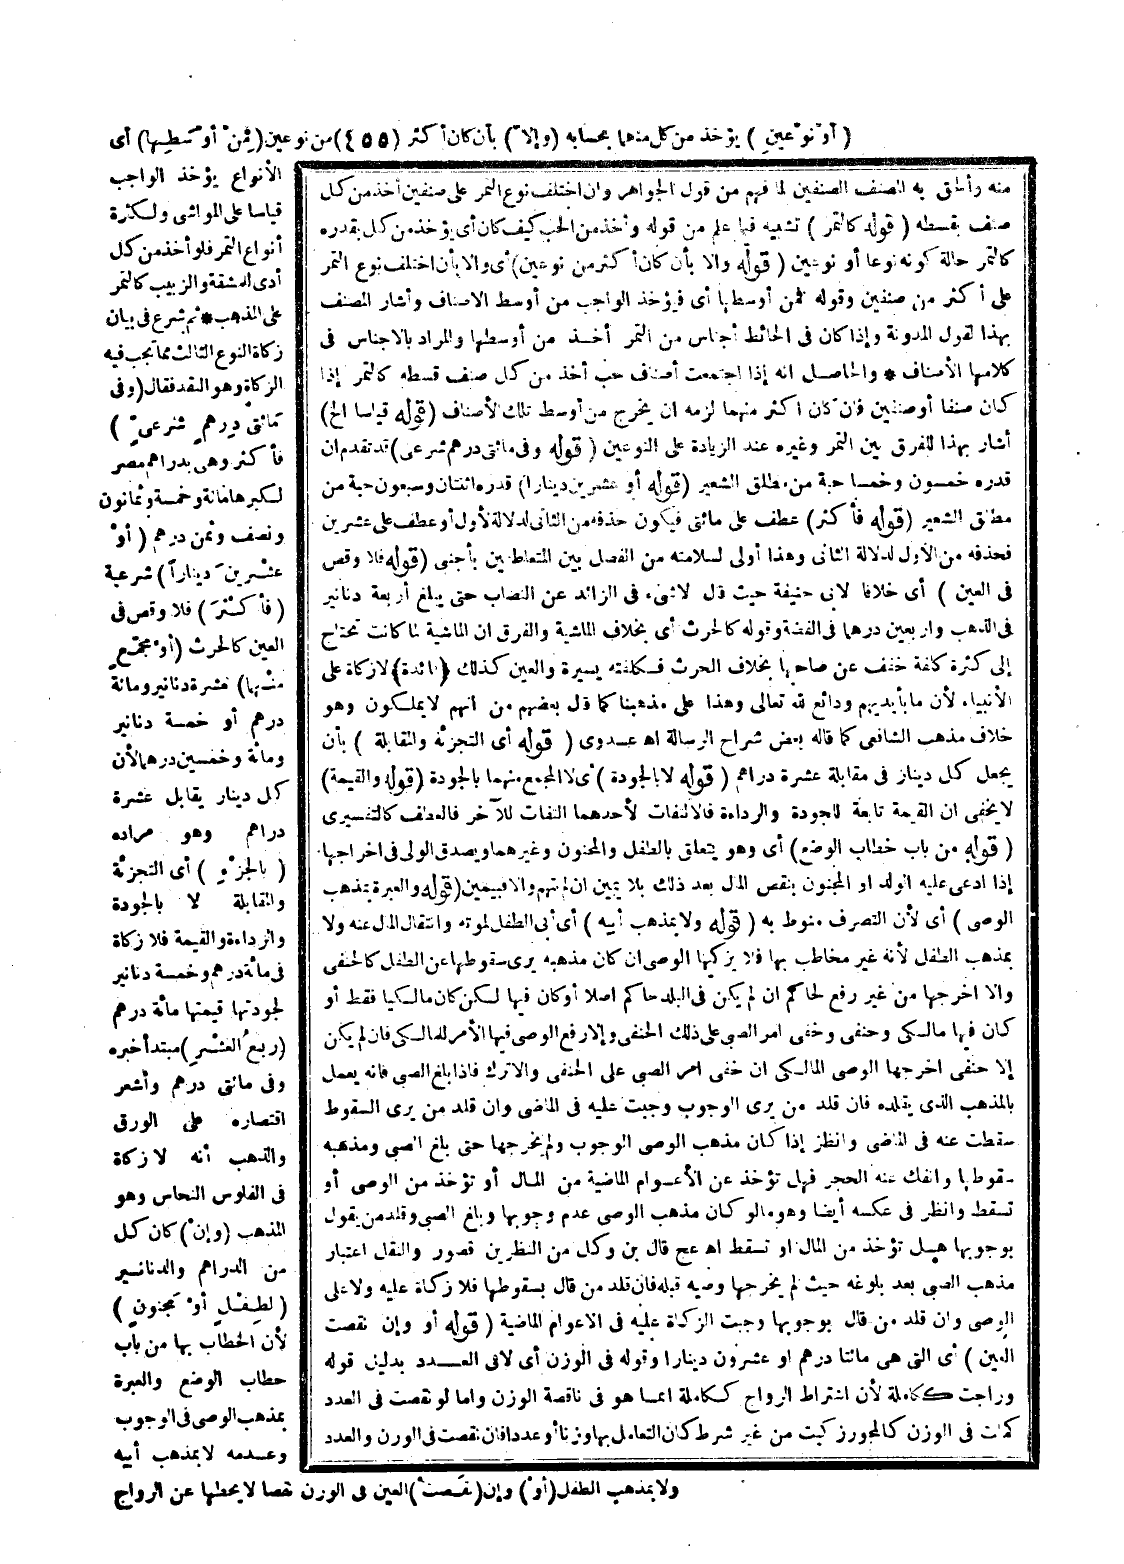 ( أَوْ نَوْعَيْنِ ) يؤخذ من كل منهما بحسابه (وإلا) بأن كان أكثر (٤٥٥) من نوعين (فَمِنْ أَوْسَطِهَا) أى
الأنواع يؤخذ الواجب
قياسا على المواشى ولكثرة
أنواع التمر فلو أخذ من كل
أدى للمشقة والزبيب كالتمر
على المذهب * ثم شرع فى بيان
زكاة النوع الثالث مما تجب فيه
الزكاة وهو النقد فقال (وفى
مَائَتَىْ دِرْهَمٍ شَرْعِىٍّ )
فأكثر وهى بدراهم مصر
لكبرها مائة وخمسة وثمانون
ونصف وثمن درهم ( أَوْ
عِشْرِينَ دِينَاراً ) شرعية
( فَأَكْثَرَ ) فلا وقص فى
العين كالحرث (أَوْ مُجَمَّعٍ
مِنْهُمَا) كعشرة دنانير ومائة
درهم أو خمسة دنانير
ومائة وخمسين درهما لأن
كل دينار يقابل عشرة
دراهم وهو مراده
( بِالْجُزْءِ ) أى التجزئة
والمقابلة لا بالجودة
والرداءة والقيمة فلا زكاة
فى مائة درهم وخمسة دنانير
لجودتها قيمتها مائة درهم
(رُبُعُ الْعُشْرِ) مبتدأ خبره
وفى مائتى درهم وأشعر
اقتصاره على الورق
والذهب أنه لا زكاة
فى الفلوس النحاس وهو
المذهب (وَإِنْ) كان كل
من الدراهم والدنانير
( لِطِفْلٍ أَوْ مَجْنُونٍ )
لأن الخطاب بها من باب
خطاب الوضع والعبرة
بمذهب الوصى فى الوجوب
وعدمه لا بمذهب أبيه
ولا بمذهب الطفل (أَوْ) وإن (نَقَصَتْ) العين فى الوزن نقصا لا يحطها عن الرواج
منه وألحق به المصنف الصنفين لما فهم من قول الجواهر وان اختلف نوع التمر على صنفين أخذ من كل
صنف بقسطه ( قوله كالتمر ) تشبيه فيما علم من قوله وأخذ من الحب كيف كان أى يؤخذ من كل بقدره
كالتمر حالة كونه نوعا أو نوعين ( قوله والا بأن كان أكثر من نوعين) أى والا بأن اختلف نوع التمر
على أكثر من صنفين وقوله فمن أوسطها أى فيؤخذ الواجب من أوسط الاصناف وأشار المصنف
بهذا لقول المدونة وإذا كان فى الحائط أجناس من التمر أخذ من أوسطها والمراد بالاجناس فى
كلامها الأصناف * والحاصل انه إذا اجتمعت أصناف حب أخذ من كل صنف قسطه كالتمر إذا
كان صنفا أو صنفين فان كان اكثر منهما لزمه ان يخرج من أوسط تلك الأصناف (قوله قياسا الخ)
أشار بهذا للفرق بين التمر وغيره عند الزيادة على النوعين ( قوله وفى مائتى درهم شرعى) قد تقدم ان
قدره خمسون وخمسا حبة من مطلق الشعير (قوله أو عشرين دينارا) قدره اثنتان وسبعون حبة من
مطلق الشعير (قوله فأكثر) عطف على مائتى فيكون حذفه من الثانى لدلالة لأول أو عطف على عشرين
فحذفه من الأول لدلالة الثانى وهذا أولى لسلامته من الفصل بين المتعاطفين بأجنبى (قوله فلا وقص
فى العين ) أى خلافا لابى حنيفة حيث قال لاشىء فى الزائد عن النصاب حتى يبلغ أربعة دنانير
فى الذهب واربعين درهما فى الفضة وقوله كالحرث أى بخلاف الماشية والفرق ان الماشية لما كانت تحتاج
إلى كثرة كلفة خفف عن صاحبها بخلاف الحرث فكلفته يسيرة والعين كذلك (فائدة) لا زكاة على
الأنبياء لأن ما بأيديهم ودائع لله تعالى وهذا على مذهبنا كما قال بعضهم من أنهم لا يملكون وهو
خلاف مذهب الشافعى كما قاله بعض شراح الرسالة اهـ عدوى ( قوله أى التجزئة والمقابلة ) بأن
يجعل كل دينار فى مقابلة عشرة دراهم ( قوله لا بالجودة ) أى لا المجمع منهما بالجودة (قوله والقيمة)
لا يخفى ان القيمة تابعة للجودة والرداءة فالالتفات لأحدهما التفات للآخر فالعطف كالتفسيرى
( قوله من باب خطاب الوضع) أى وهو يتعلق بالطفل والمجنون وغيرهما ويصدق الولى فى اخراجها
إذا ادعى عليه الولد او المجنون بنقص المال بعد ذلك بلا يمين ان لم يتهم والا فبيمين (قوله والعبرة بمذهب
الوصى ) أى لأن التصرف منوط به ( قوله ولا بمذهب أبيه ) أى أبى الطفل لموته وانتقال المال عنه ولا
بمذهب الطفل لأنه غير مخاطب بها فلا يزكيها الوصى ان كان مذهبه يرى سقوطها عن الطفل كالحنفى
والا اخرجها من غير رفع لحاكم ان لم يكن فى البلد حاكم اصلا أو كان فيها لكن كان مالكيا فقط أو
كان فيها مالكى وحنفى وخفى امر الصبى على ذلك الحنفى وإلا رفع الوصى فيها الأمر للمالكى فان لم يكن
إلا حنفى اخرجها الوصى المالكى ان خفى امر الصبى على الحنفى والا ترك فاذا بلغ الصبى فانه يعمل
بالمذهب الذى يقلده فان قلد من يرى الوجوب وجبت عليه فى الماضى وان قلد من يرى السقوط
سقطت عنه فى الماضى وانظر إذا كان مذهب الوصى الوجوب ولم يخرجها حتى بلغ الصبى ومذهبه
سقوطها وانفك عنه الحجر فهل تؤخذ عن الأعوام الماضية من المال أو تؤخذ من الوصى أو
تسقط وانظر فى عكسه أيضا وهو ما لو كان مذهب الوصى عدم وجوبها وبلغ الصبى وقلد من يقول
بوجوبها هل تؤخذ من المال او تسقط اهـ عج قال بن وكل من النظرين قصور والنقل اعتبار
مذهب الصبى بعد بلوغه حيث لم يخرجها وصيه قبله فان قلد من قال بسقوطها فلا زكاة عليه ولا على
الوصى وان قلد من قال بوجوبها وجبت الزكاة عليه فى الاعوام الماضية ( قوله أو وإن نقصت
العين ) أى التى هى مائتا درهم او عشرون دينارا وقوله فى الوزن أى لا فى العدد بدليل قوله
وراجت ككاملة لأن اشتراط الرواج ككاملة انما هو فى ناقصة الوزن واما لو نقصت فى العدد
كملت فى الوزن كالمجوز زكيت من غير شرط كان التعامل بها وزنا أو عددا فان نقصت فى الوزن والعدد